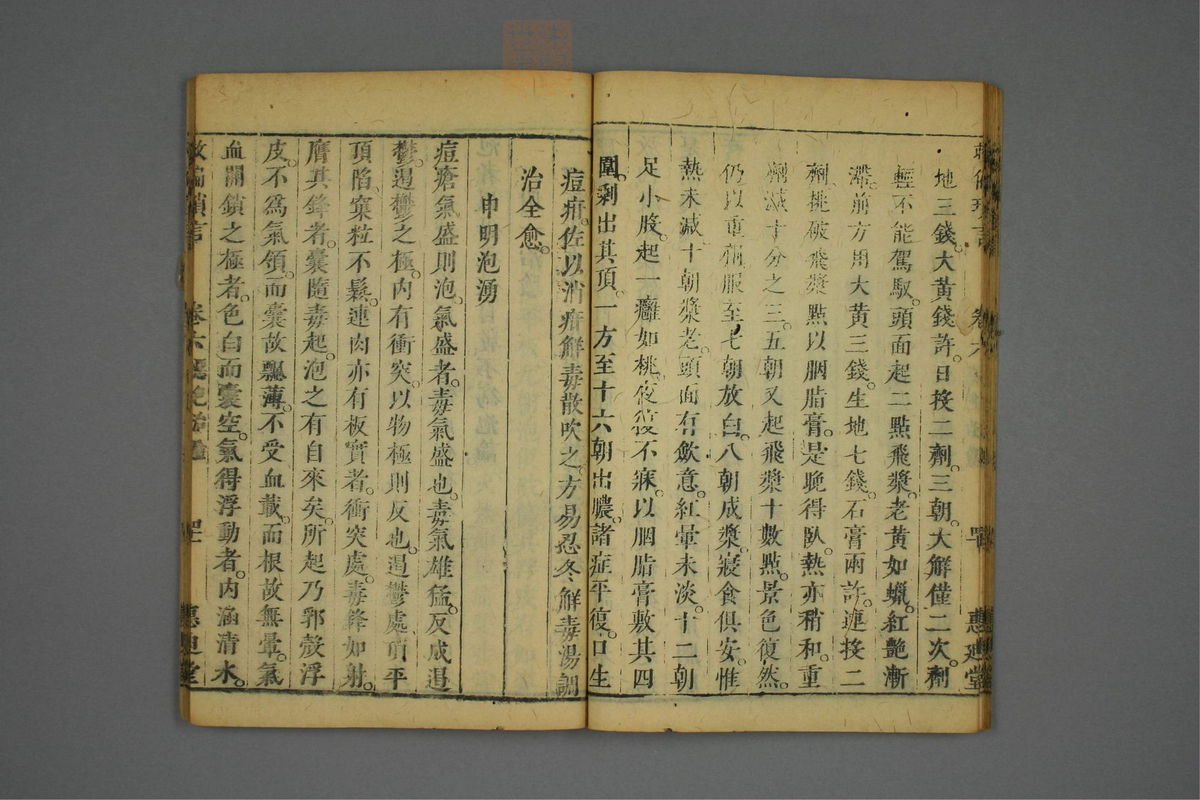 地三錢。大黃錢許。日投二劑。三朝。大解僅二次。劑
輕不能駕馭。頭面起二點飛漿。老黃如蠟。紅艷漸
滯。前方用大黃三錢。生地七錢。石膏兩許。連投二
劑。挑破飛漿。點以胭脂膏。是晚得臥。熱亦稍和。重
劑減十分之三。五朝又起飛漿十數點。景色復然。
仍以重劑服至七朝放白。八朝成漿。寢食俱安。惟
熱未減。十朝漿老。頭面有斂意。紅暈未淡。十二朝
足小股。起一癰如桃。夜復不寐。以胭脂膏敷其四
圍。剩出其頂。一方至十六朝出膿。諸症平復。口生
痘疳。佐以消疳解毒散吹之。方易忍冬解毒湯調
治全愈。
申明泡湧
痘瘡氣盛則泡。氣盛者。毒氣盛也。毒氣雄猛。反成遏
鬱。遏鬱之極。內有衝突。以物極則反也。遏鬱處。頂平
頂陷。窠粒不鬆。連肉亦有板實者。衝突處。毒鋒如射。
膺其鋒者。囊隨毒起。泡之有自來矣。所起乃郛殼浮
皮。不為氣領。而囊故飄薄。不受血載。而根故無暈。氣
血關鎖之極者。色白而囊空。氣得浮動者。內涵清水。
救偏瑣言
卷六
惠迪堂